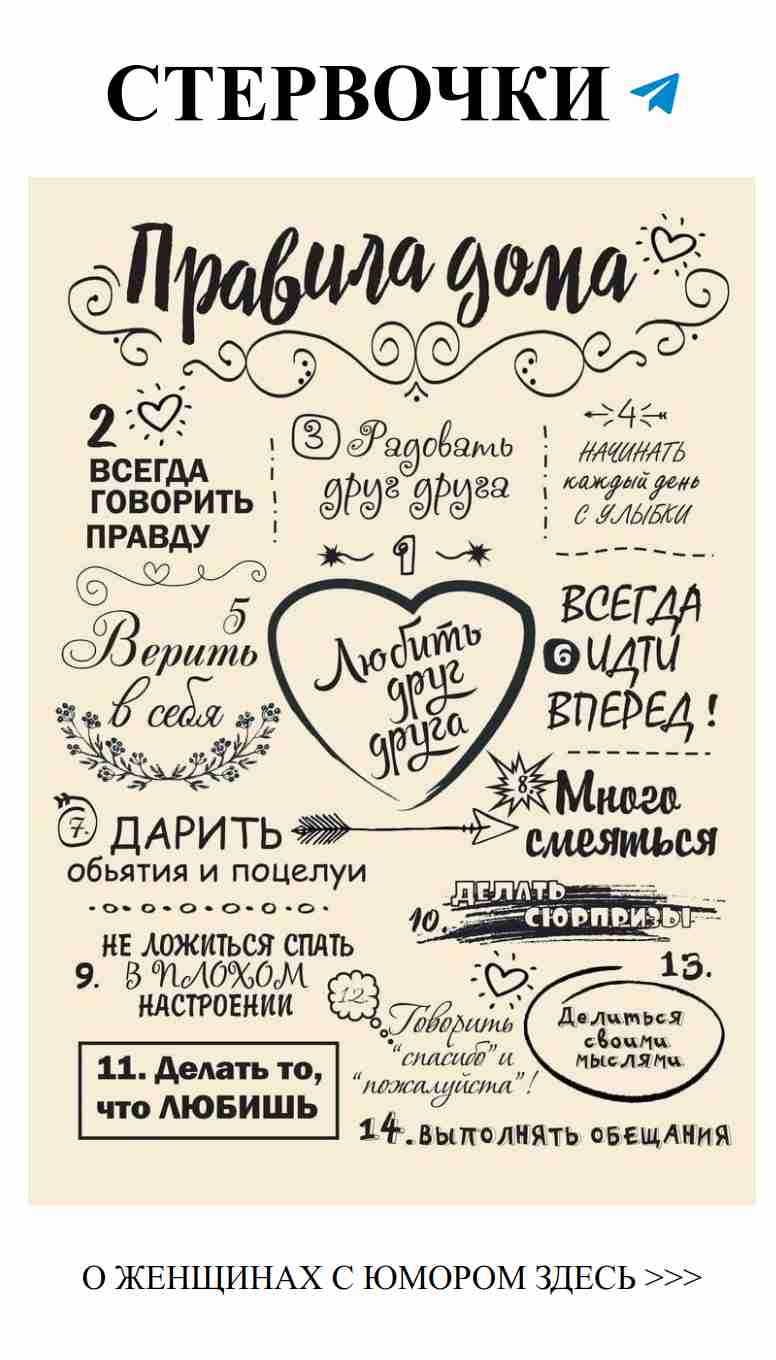 СТЕРВОЧКИ
Правила дома
2
ВСЕГДА
ГОВОРИТЬ
ПРАВДУ
3 Радовать
друг друга
4
НАЧИНАТЬ
каждый день
С УЛЫБКИ
1
Любить
друг
друга
5
Верить
в себя
ВСЕГДА
6 ИДТИ
ВПЕРЕД!
7. ДАРИТЬ
обьятия и поцелуи
8. Много
смеяться
НЕ ЛОЖИТЬСЯ СПАТЬ
9. В ПЛОХОМ
НАСТРОЕНИИ
10. ДЕЛАТЬ
СЮРПРИЗЫ
11. Делать то,
что ЛЮБИШЬ
12. Говорить
“спасибо” и
“пожалуйста”!
13.
Делиться
своими
мыслями
14. ВЫПОЛНЯТЬ ОБЕЩАНИЯ
О ЖЕНЩИНАХ С ЮМОРОМ ЗДЕСЬ >>>